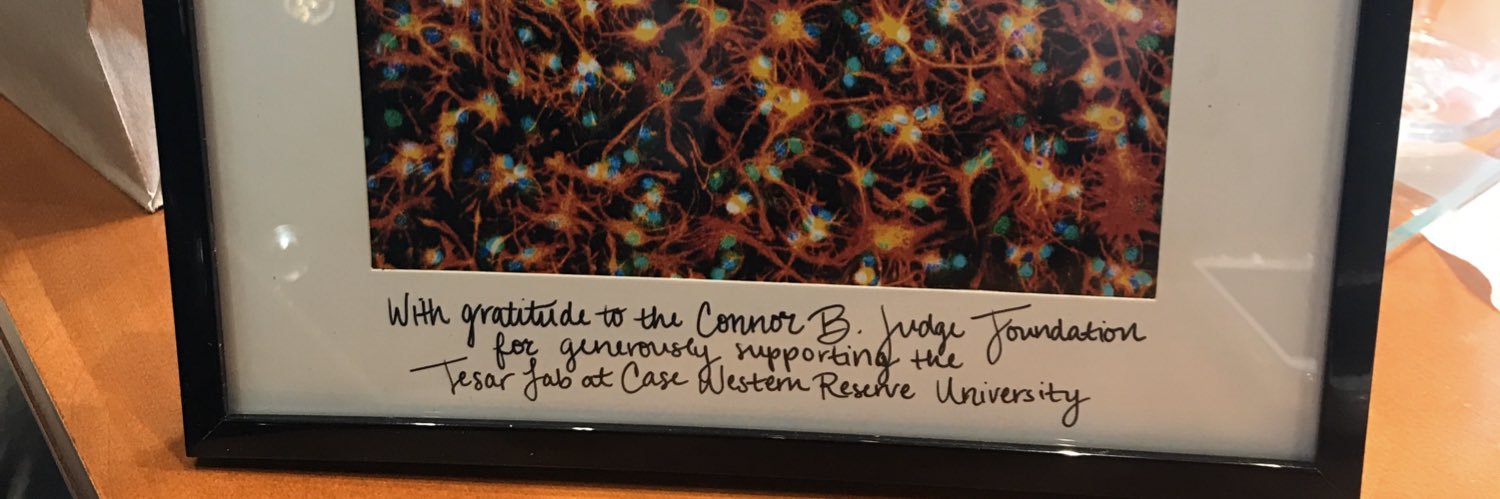 With gratitude to the Connor B. Judge Foundation
for generously supporting the
Tesar Lab at Case Western Reserve University